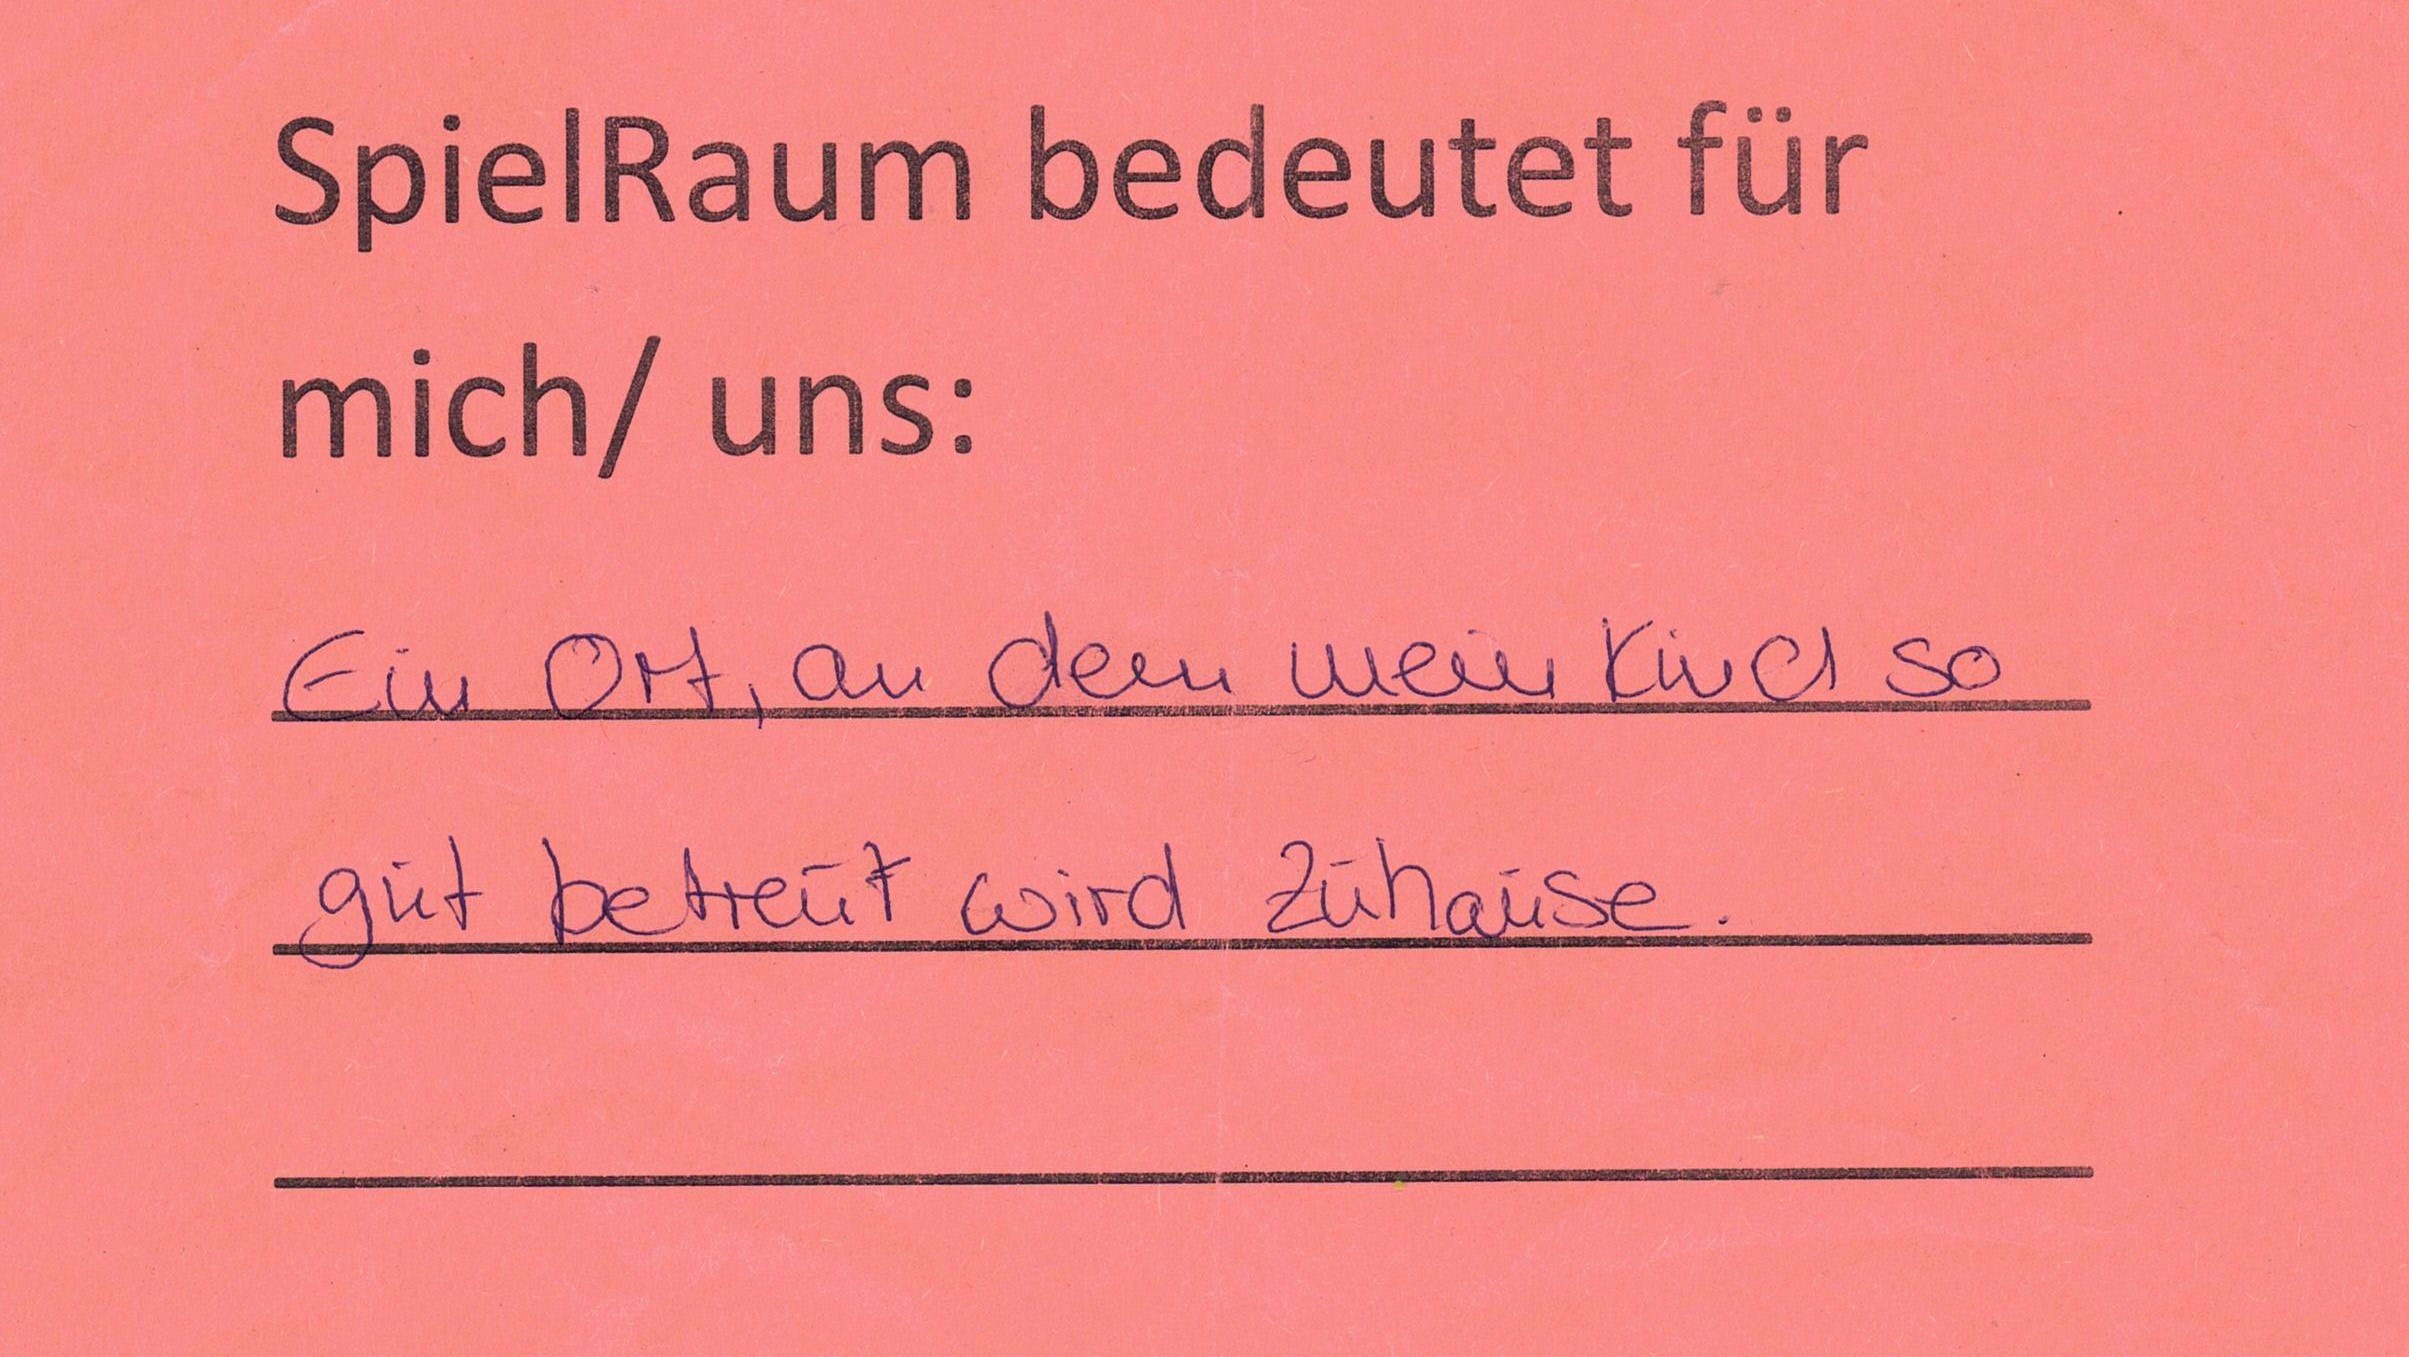 SpielRaum bedeutet für
mich/ uns:
Ein Ort, an dem mein Kind so
gut betreut wird zuhause.